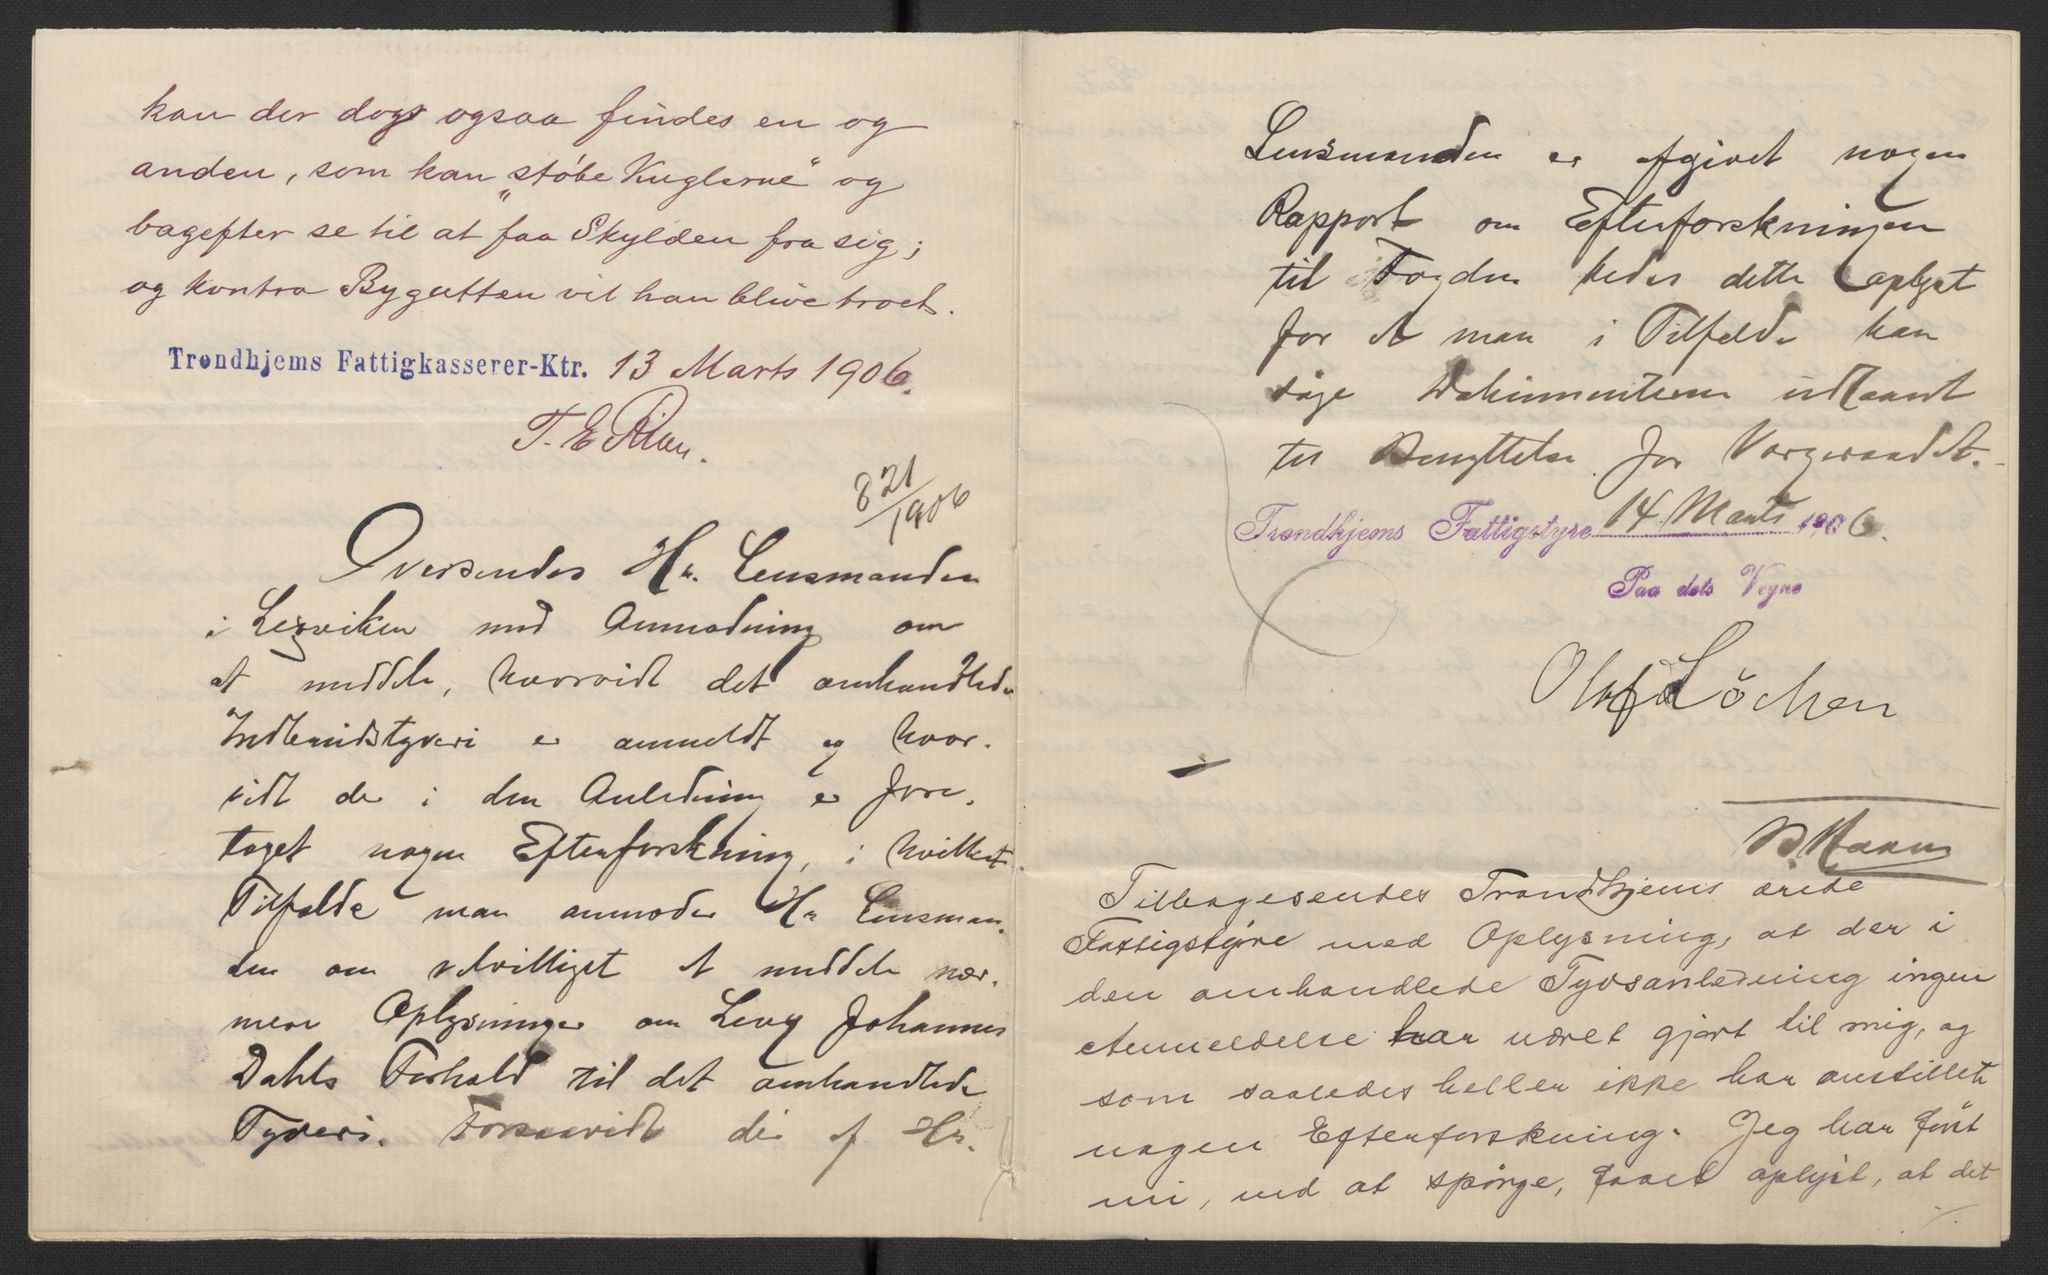 kan der dog ogsaa findes en og
anden, som kan „støbe Kuglerne“ og
bagefter se til at faa Skylden fra sig;
og kontra Bygutten vil han blive troet.
Trondhjems Fattigkasserer-Ktr. 13 Marts 1906.
T. E.
821/1906
Oversendes Hr. Lensmanden
i Lexviken med Anmodning om
at meddele, hvorvidt det omhandlede
Indbrudstyveri er anmeldt og hvor-
vidt der i den Anledning er fore-
taget nogen Efterforskning, i hvilket
Tilfælde man anmoder Hr Lensman-
den om velvilligst at meddele nær-
mere Oplysninger om Levy Johannes
Dahls Forhold til det omhandlede
Tyveri. Forsaavidt der af Hr.
Lensmanden er afgivet nogen
Rapport om Efterforskningen
til Fogden bedes dette oplyst
for at man i Tilfelde kan
søge Dokumenterne udlaant
til Benyttelse for Vergeraadet.
Trondhjems Fattigstyre 14 Marts 1906.
Paa dets Vegne
Olaf Løchen
Tilbagesendes Trondhjems ærede
Fattigstyre med Oplysning, at der i
den omhandlede Tyvsanledning ingen
Anmeldelse har været gjort til mig, og
som saaledes heller ikke har anstillet
nogen Efterforskning. Jeg har først
nu, ved at spørge, faaet oplyst, at det
./.